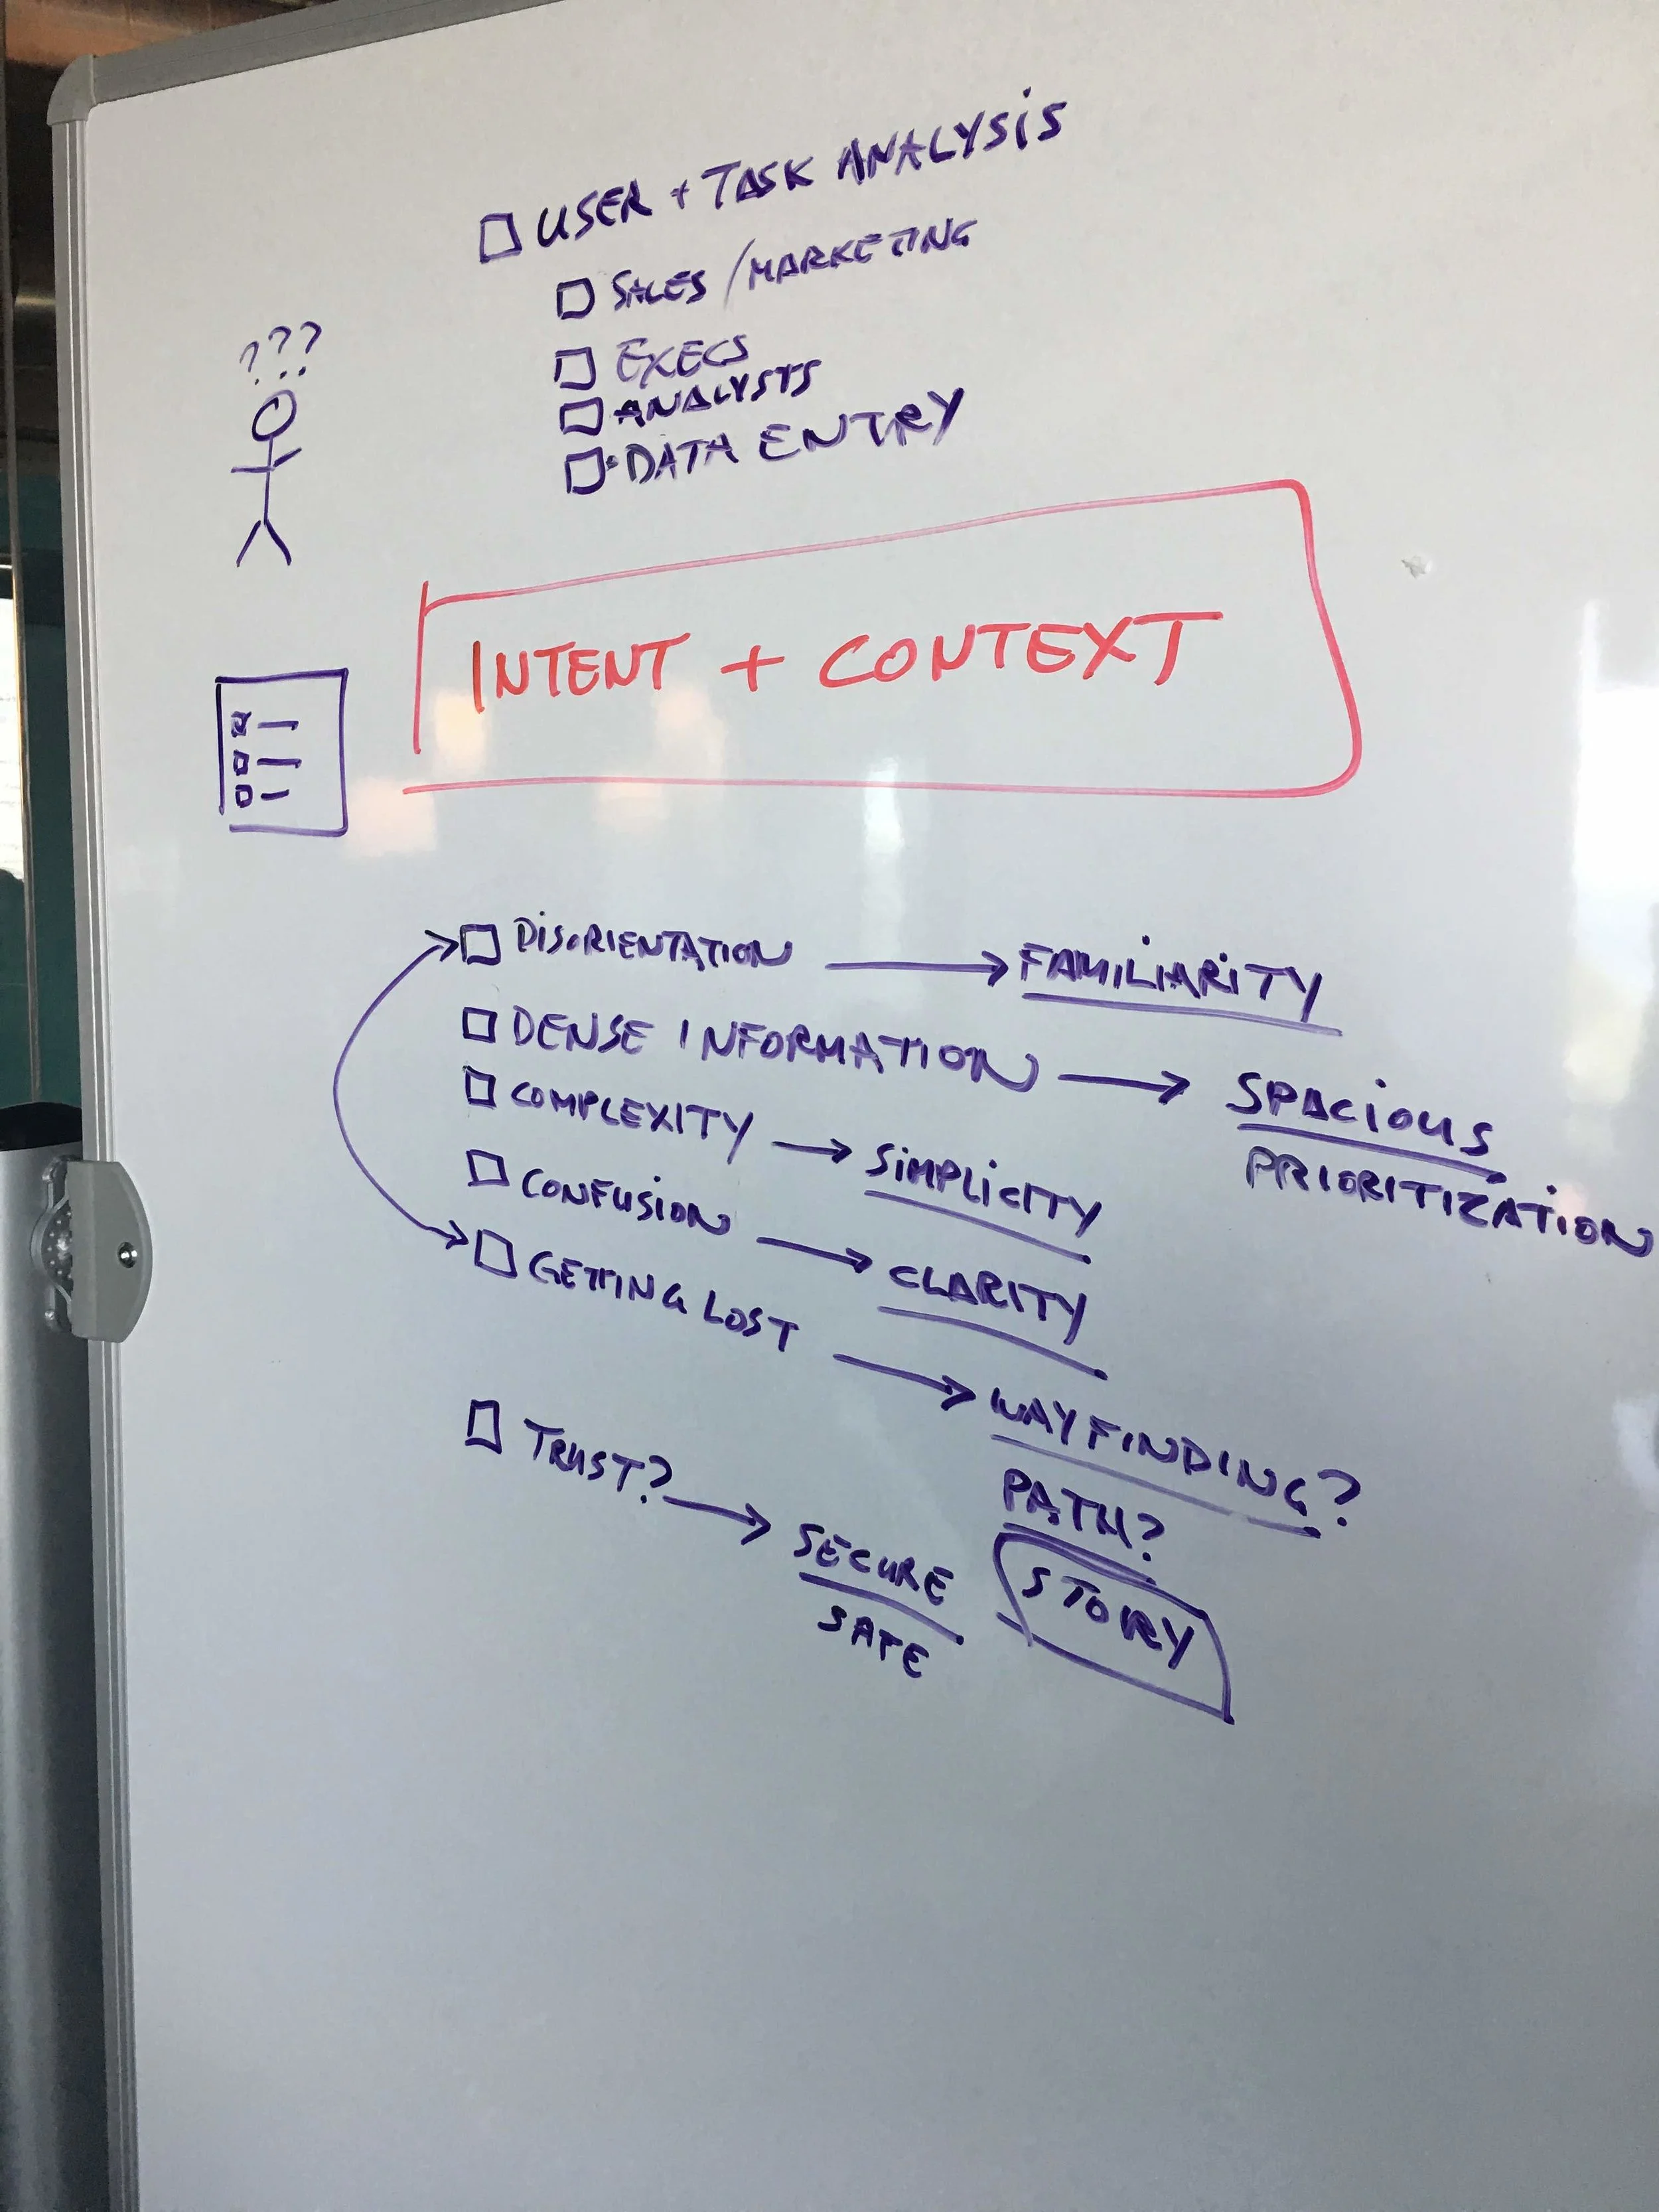 USER + TASK ANALYSIS
SALES / MARKETING
EXECS
ANALYSTS
DATA ENTRY
???
INTENT + CONTEXT
DISORIENTATION → FAMILIARITY
DENSE INFORMATION → SPACIOUS
PRIORITIZATION
COMPLEXITY → SIMPLICITY
CONFUSION → CLARITY
GETTING LOST → WAYFINDING?
PATH?
STORY
TRUST? → SECURE
SAFE